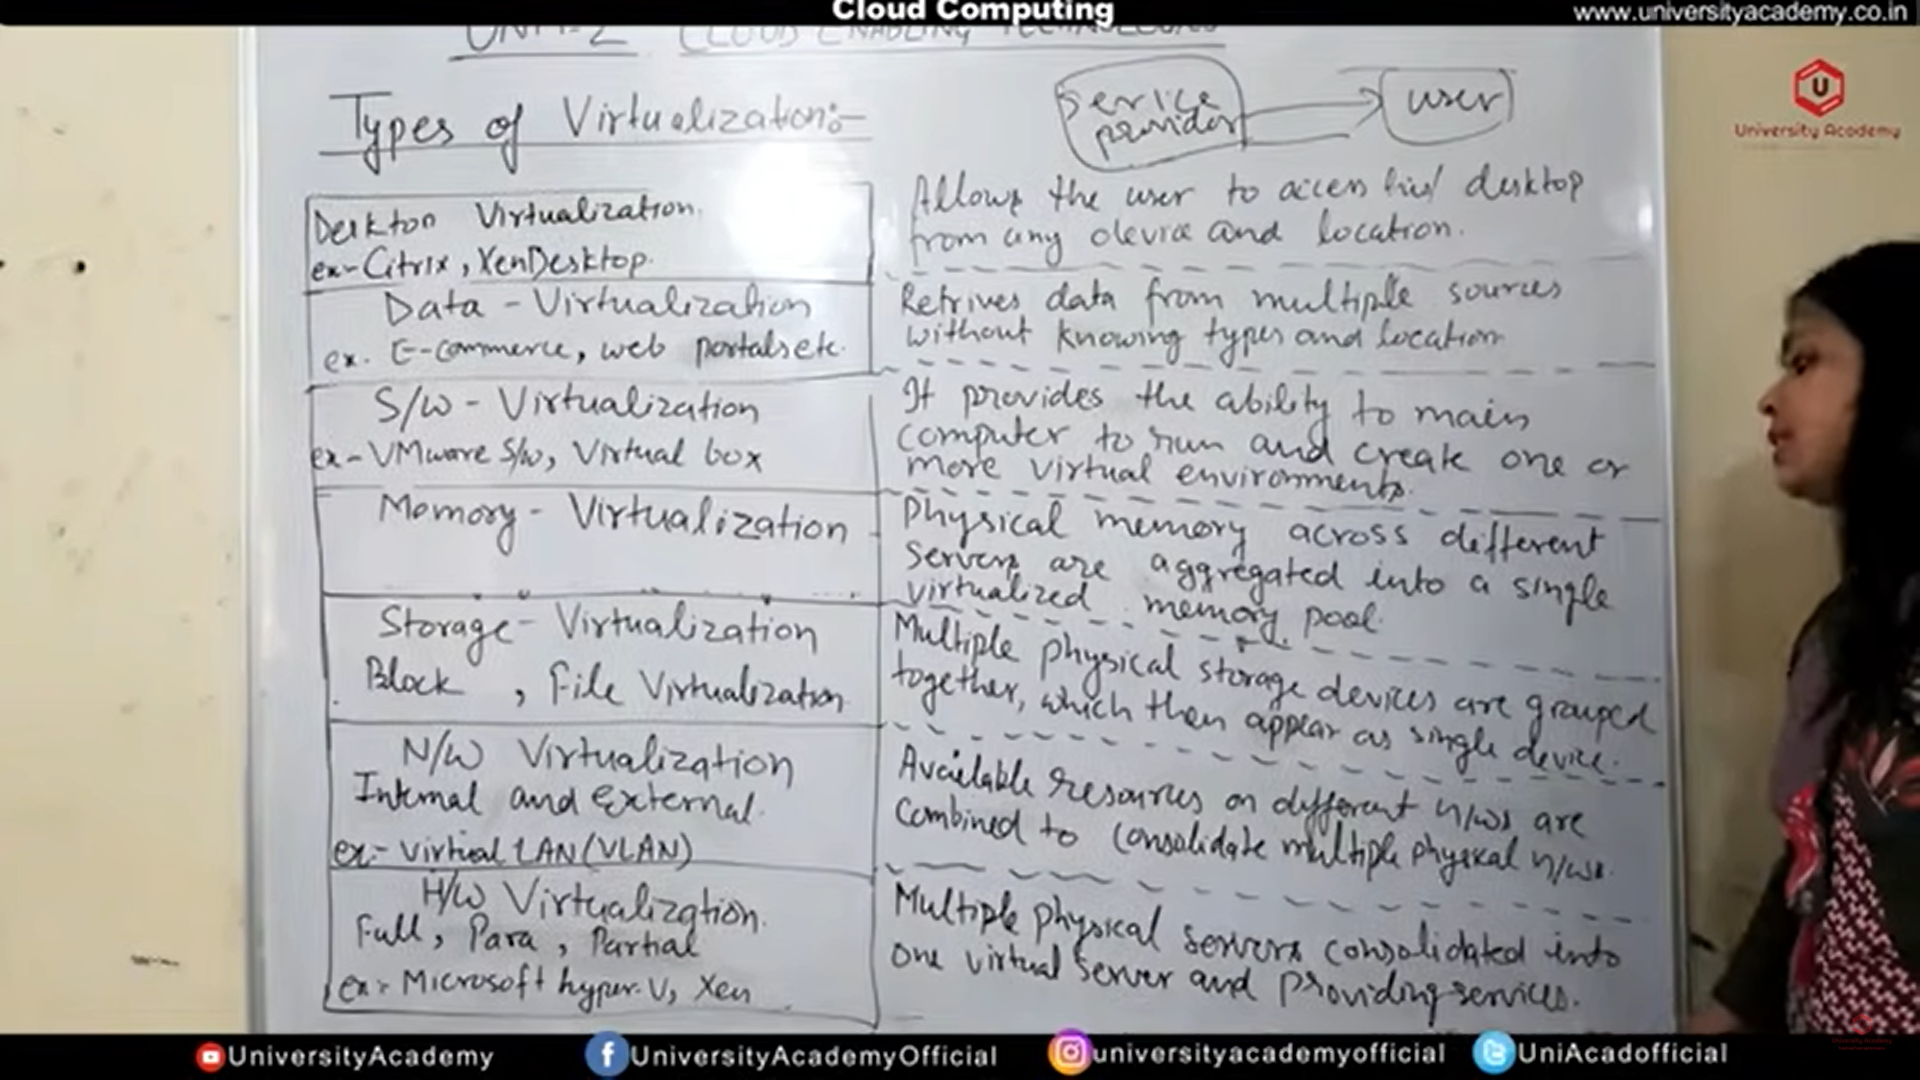 Cloud Computing
www.universityacademy.co.in
UNIT-2 CLOUD ENABLING TECHNOLOGIES
University Academy
Types of Virtualization:-
Service provider
user
Desktop Virtualization.
ex- Citrix, XenDesktop.
Allows the user to access his/ desktop
from any device and location.
Data - Virtualization
ex. E-commerce, web portals etc.
Retrives data from multiple sources
without knowing types and location
S/W - Virtualization
ex- VMware S/w, Virtual box
It provides the ability to main
computer to run and create one or
more virtual environments.
Memory - Virtualization
Physical memory across different
servers are aggregated into a single
virtualized memory pool.
Storage - Virtualization
Block , File Virtualization
Multiple physical storage devices are grouped
together, which then appear as single device.
N/W Virtualization
Internal and External.
ex:- Virtual LAN (VLAN)
Available resources on different n/ws are
combined to consolidate multiple physical n/ws.
H/W Virtualization.
Full, Para, Partial
ex:- Microsoft hyper-V, Xen
Multiple physical servers consolidated into
one virtual server and providing services.
UniversityAcademy
UniversityAcademyOfficial
universityacademyofficial
UniAcadofficial